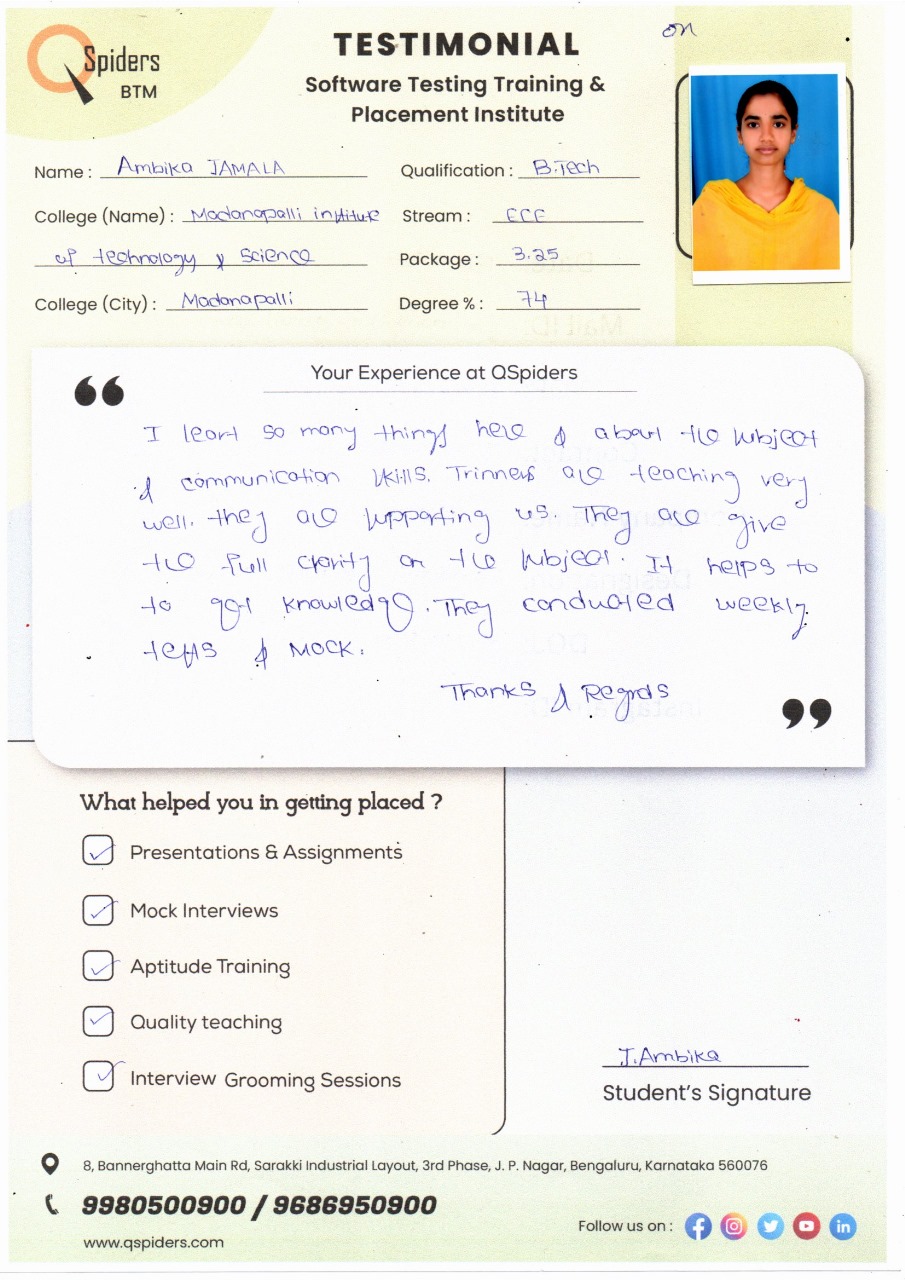 on
QSpiders
BTM
TESTIMONIAL
Software Testing Training &
Placement Institute
Name : Ambika JAMALA
Qualification : B.Tech
College (Name) : Madanapalli institute
of technology & science
Stream : ECE
Package : 3.25
College (City) : Madanapalli
Degree % : 74
Your Experience at QSpiders
I leart so many things here & about the subject
& communication skills. Trinners are teaching very
well. they are supporting us. They are give
the full clarity on the subject. It helps to
to got knowledge. They conducted weekly
tests & Mock.
Thanks & Regrds
What helped you in getting placed ?
Presentations & Assignments
Mock Interviews
Aptitude Training
Quality teaching
Interview Grooming Sessions
J.Ambika
Student's Signature
8, Bannerghatta Main Rd, Sarakki Industrial Layout, 3rd Phase, J. P. Nagar, Bengaluru, Karnataka 560076
9980500900 / 9686950900
www.qspiders.com
Follow us on :